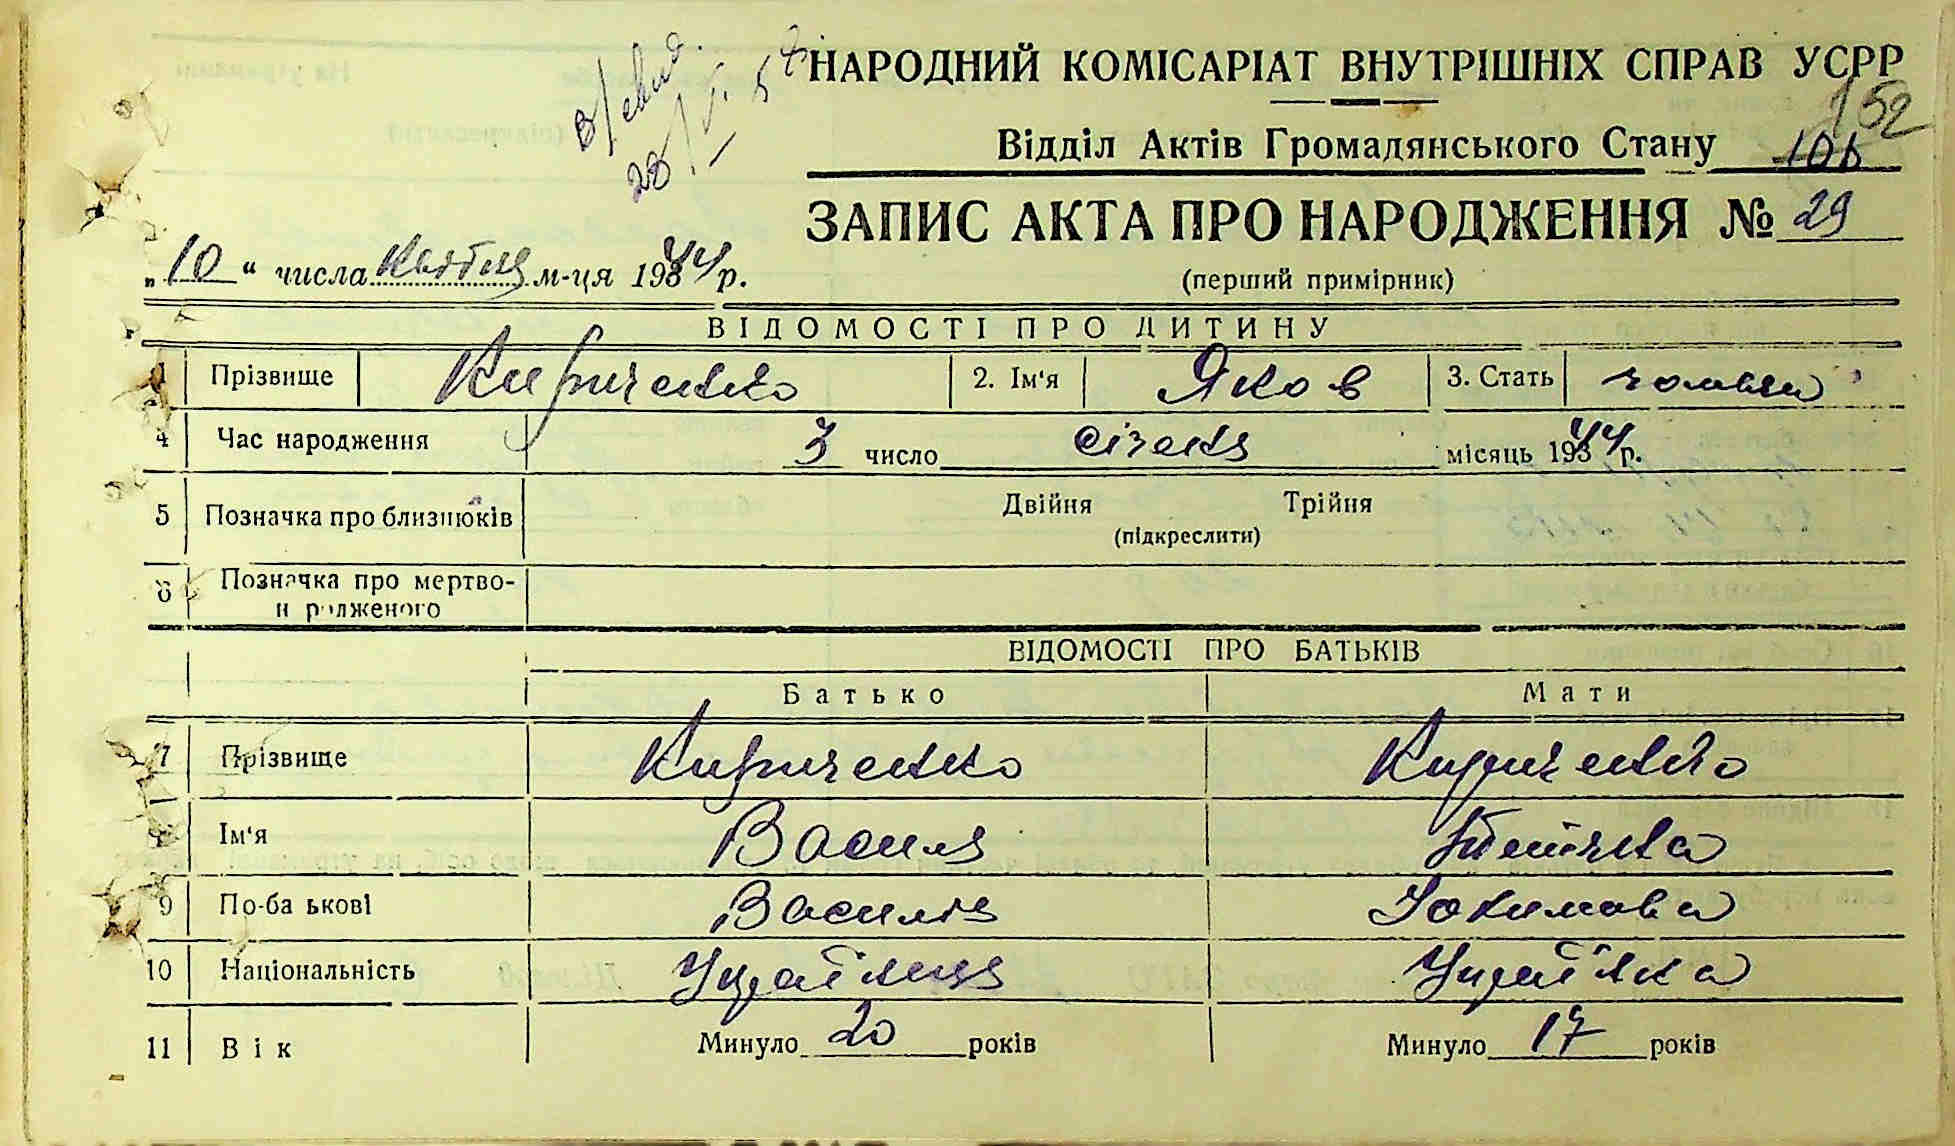 В/свид.
28/V-57
НАРОДНИЙ КОМІСАРІАТ ВНУТРІШНІХ СПРАВ УСРР
152
Відділ Актів Громадянського Стану 106
ЗАПИС АКТА ПРО НАРОДЖЕННЯ № 29
(перший примірник)
„10“ числа квітня м-ця 1944 р.
ВІДОМОСТІ ПРО ДИТИНУ
1 Прізвище Кириченко 2. Ім'я Яков 3. Стать
4 Час народження 3 число січня місяць 1944 р.
5 Позначка про близнюків Двійня Трійня
(підкреслити)
6 Позначка про мертво-
народженого
ВІДОМОСТІ ПРО БАТЬКІВ
Батько Мати
7 Прізвище Кириченко Кириченко
Ім'я Василь
9 По-ба ькові Василів Юхимовна
10 Національність Українець Українка
11 Вік Минуло 20 років Минуло 17 років